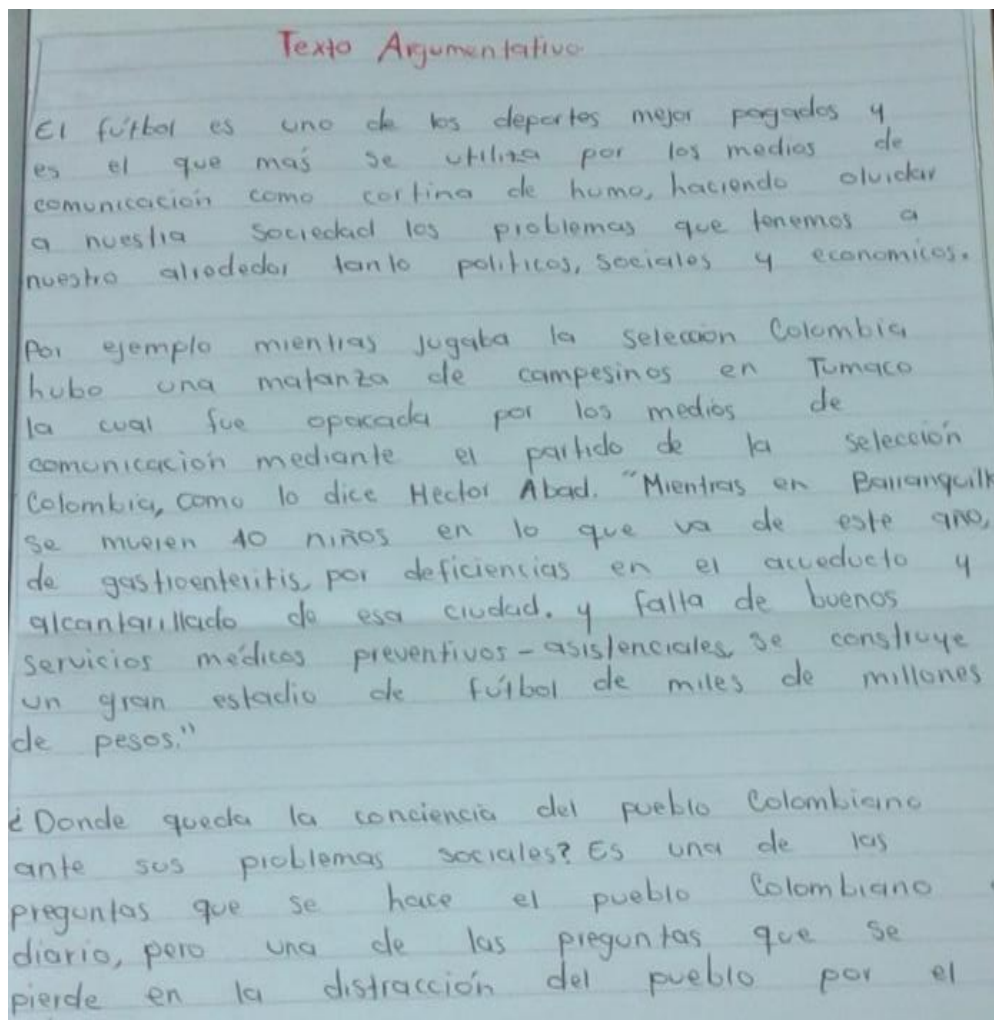 Texto Argumentativo
El fútbol es uno de los deportes mejor pagados y
es el que más se utiliza por los medios de
comunicación como cortina de humo, haciendo olvidar
a nuestra sociedad los problemas que tenemos a
nuestro alrededor tanto politicos, sociales y economicos.
Por ejemplo mientras jugaba la selección Colombia
hubo una matanza de campesinos en Tumaco
la cual fue opacada por los medios de
comunicación mediante el partido de la selección
Colombia, como lo dice Hector Abad. "Mientras en Barranquill
se mueren 10 niños en lo que va de este año,
de gastroenteritis, por deficiencias en el acueducto y
alcantarillado de esa ciudad. y falta de buenos
servicios médicos preventivos - asistenciales, se construye
un gran estadio de fútbol de miles de millones
de pesos."
¿Donde queda la conciencia del pueblo Colombiano
ante sus problemas sociales? Es una de las
preguntas que se hace el pueblo Colombiano
diario, pero una de las preguntas que se
pierde en la distracción del pueblo por el